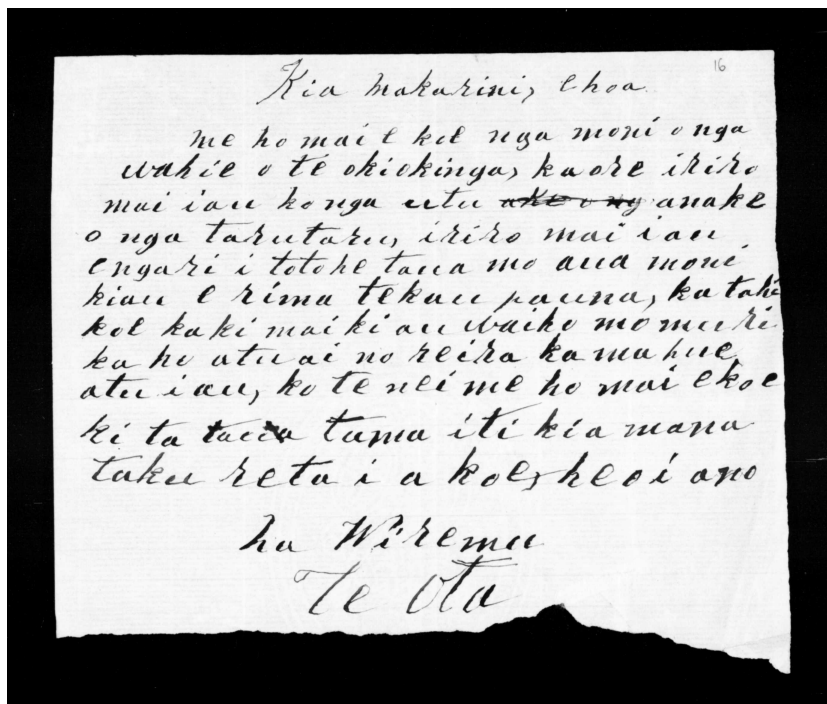 16
Kia Makarini, ehoa
me ho mai e koe nga moni o nga
wahie o te okiokinga, kaore iriro
mai iau ko nga utu ake o ng anake
o nga tarutaru, iriro mai iau
engari i totohe taua mo aua moni
kiau e rima tekau pauna, ka tahi
koe ka ki mai ki au waiho mo muri
ka ho atu ai no reira ka mahue
atu i au, ko te nei me ho mai e koe
ki ta taua tama iti kia mana
taku reta i a koe, heoi ano
na Wiremu
Te Ota